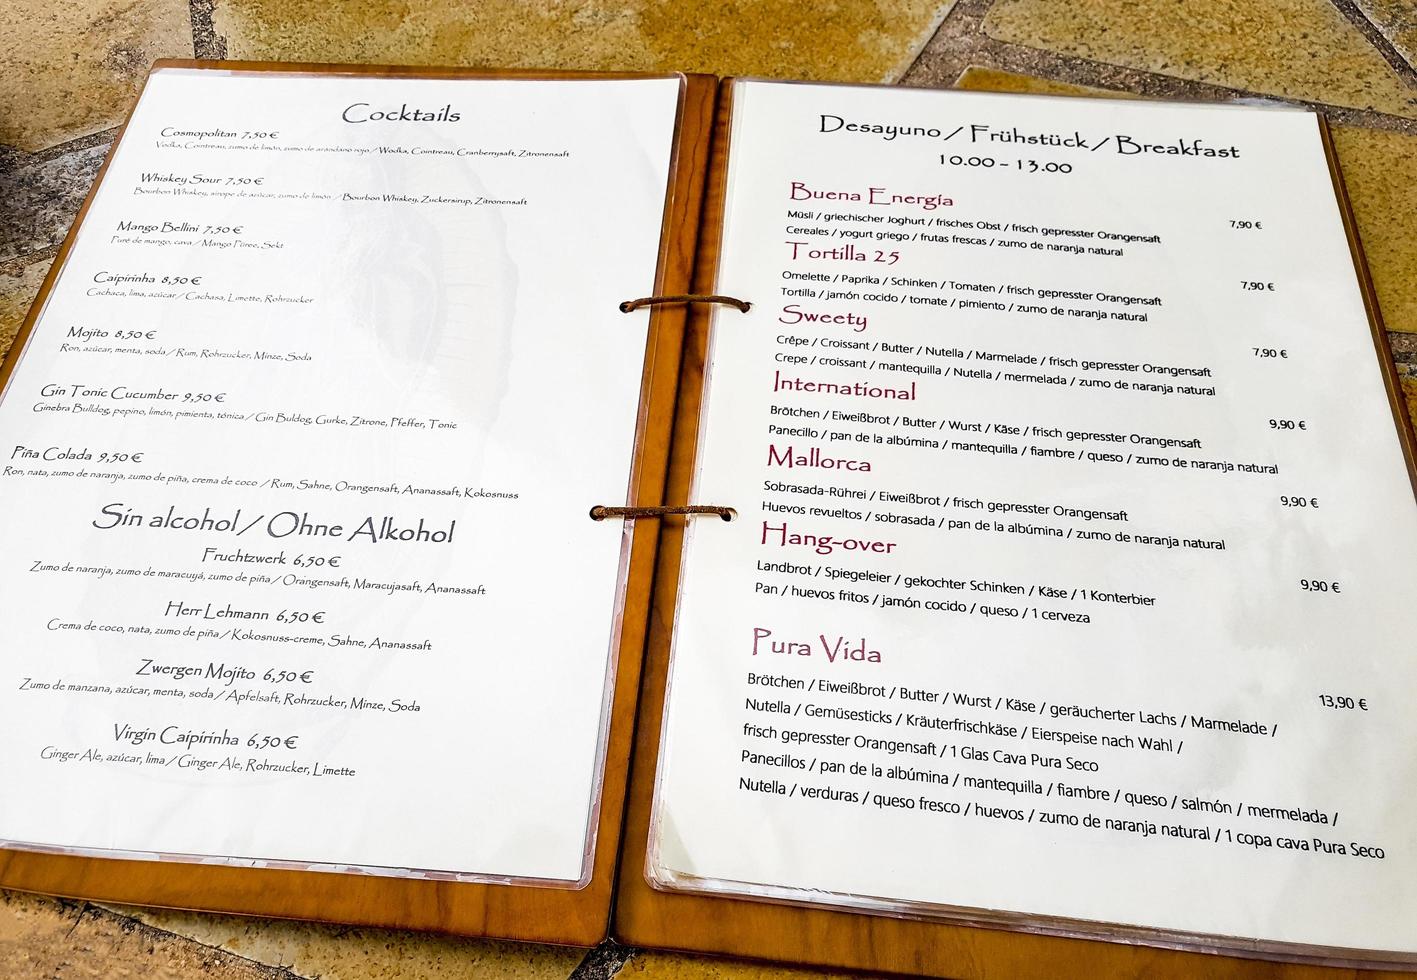 Cocktails
Cosmopolitan 7,50 €
Vodka, Cointreau, zumo de limón, zumo de arándano rojo / Wodka, Cointreau, Cranberrysaft, Zitronensaft
Whiskey Sour 7,50 €
Bourbon Whiskey, sirope de azúcar, zumo de limón / Bourbon Whiskey, Zuckersirup, Zitronensaft
Mango Bellini 7,50 €
Puré de mango, cava / Mango Püree, Sekt
Caipirinha 8,50 €
Cachaca, lima, azúcar / Cachasa, Limette, Rohrzucker
Mojito 8,50 €
Ron, azúcar, menta, soda / Rum, Rohrzucker, Minze, Soda
Gin Tonic Cucumber 9,50 €
Ginebra Bulldog, pepino, limón, pimienta, tónica / Gin Buldog, Gurke, Zitrone, Pfeffer, Tonic
Piña Colada 9,50 €
Ron, nata, zumo de naranja, zumo de piña, crema de coco / Rum, Sahne, Orangensaft, Ananassaft, Kokosnuss
Sin alcohol / Ohne Alkohol
Fruchtzwerk 6,50 €
Zumo de naranja, zumo de maracuyá, zumo de piña / Orangensaft, Maracujasaft, Ananassaft
Herr Lehmann 6,50 €
Crema de coco, nata, zumo de piña / Kokosnuss-creme, Sahne, Ananassaft
Zwergen Mojito 6,50 €
Zumo de manzana, azúcar, menta, soda / Apfelsaft, Rohrzucker, Minze, Soda
Virgin Caipirinha 6,50 €
Ginger Ale, azúcar, lima / Ginger Ale, Rohrzucker, Limette
Desayuno / Frühstück / Breakfast
10.00 – 13.00
Buena Energía
7,90 €
Müsli / griechischer Joghurt / frisches Obst / frisch gepresster Orangensaft
Cereales / yogurt griego / frutas frescas / zumo de naranja natural
Tortilla 25
7,90 €
Omelette / Paprika / Schinken / Tomaten / frisch gepresster Orangensaft
Tortilla / jamón cocido / tomate / pimiento / zumo de naranja natural
Sweety
7,90 €
Crêpe / Croissant / Butter / Nutella / Marmelade / frisch gepresster Orangensaft
Crepe / croissant / mantequilla / Nutella / mermelada / zumo de naranja natural
International
9,90 €
Brötchen / Eiweißbrot / Butter / Wurst / Käse / frisch gepresster Orangensaft
Panecillo / pan de la albúmina / mantequilla / fiambre / queso / zumo de naranja natural
Mallorca
9,90 €
Sobrasada-Rührei / Eiweißbrot / frisch gepresster Orangensaft
Huevos revueltos / sobrasada / pan de la albúmina / zumo de naranja natural
Hang-over
9,90 €
Landbrot / Spiegeleier / gekochter Schinken / Käse / 1 Konterbier
Pan / huevos fritos / jamón cocido / queso / 1 cerveza
Pura Vida
13,90 €
Brötchen / Eiweißbrot / Butter / Wurst / Käse / geräucherter Lachs / Marmelade /
Nutella / Gemüsesticks / Kräuterfrischkäse / Eierspeise nach Wahl /
frisch gepresster Orangensaft / 1 Glas Cava Pura Seco
Panecillos / pan de la albúmina / mantequilla / fiambre / queso / salmón / mermelada /
Nutella / verduras / queso fresco / huevos / zumo de naranja natural / 1 copa cava Pura Seco